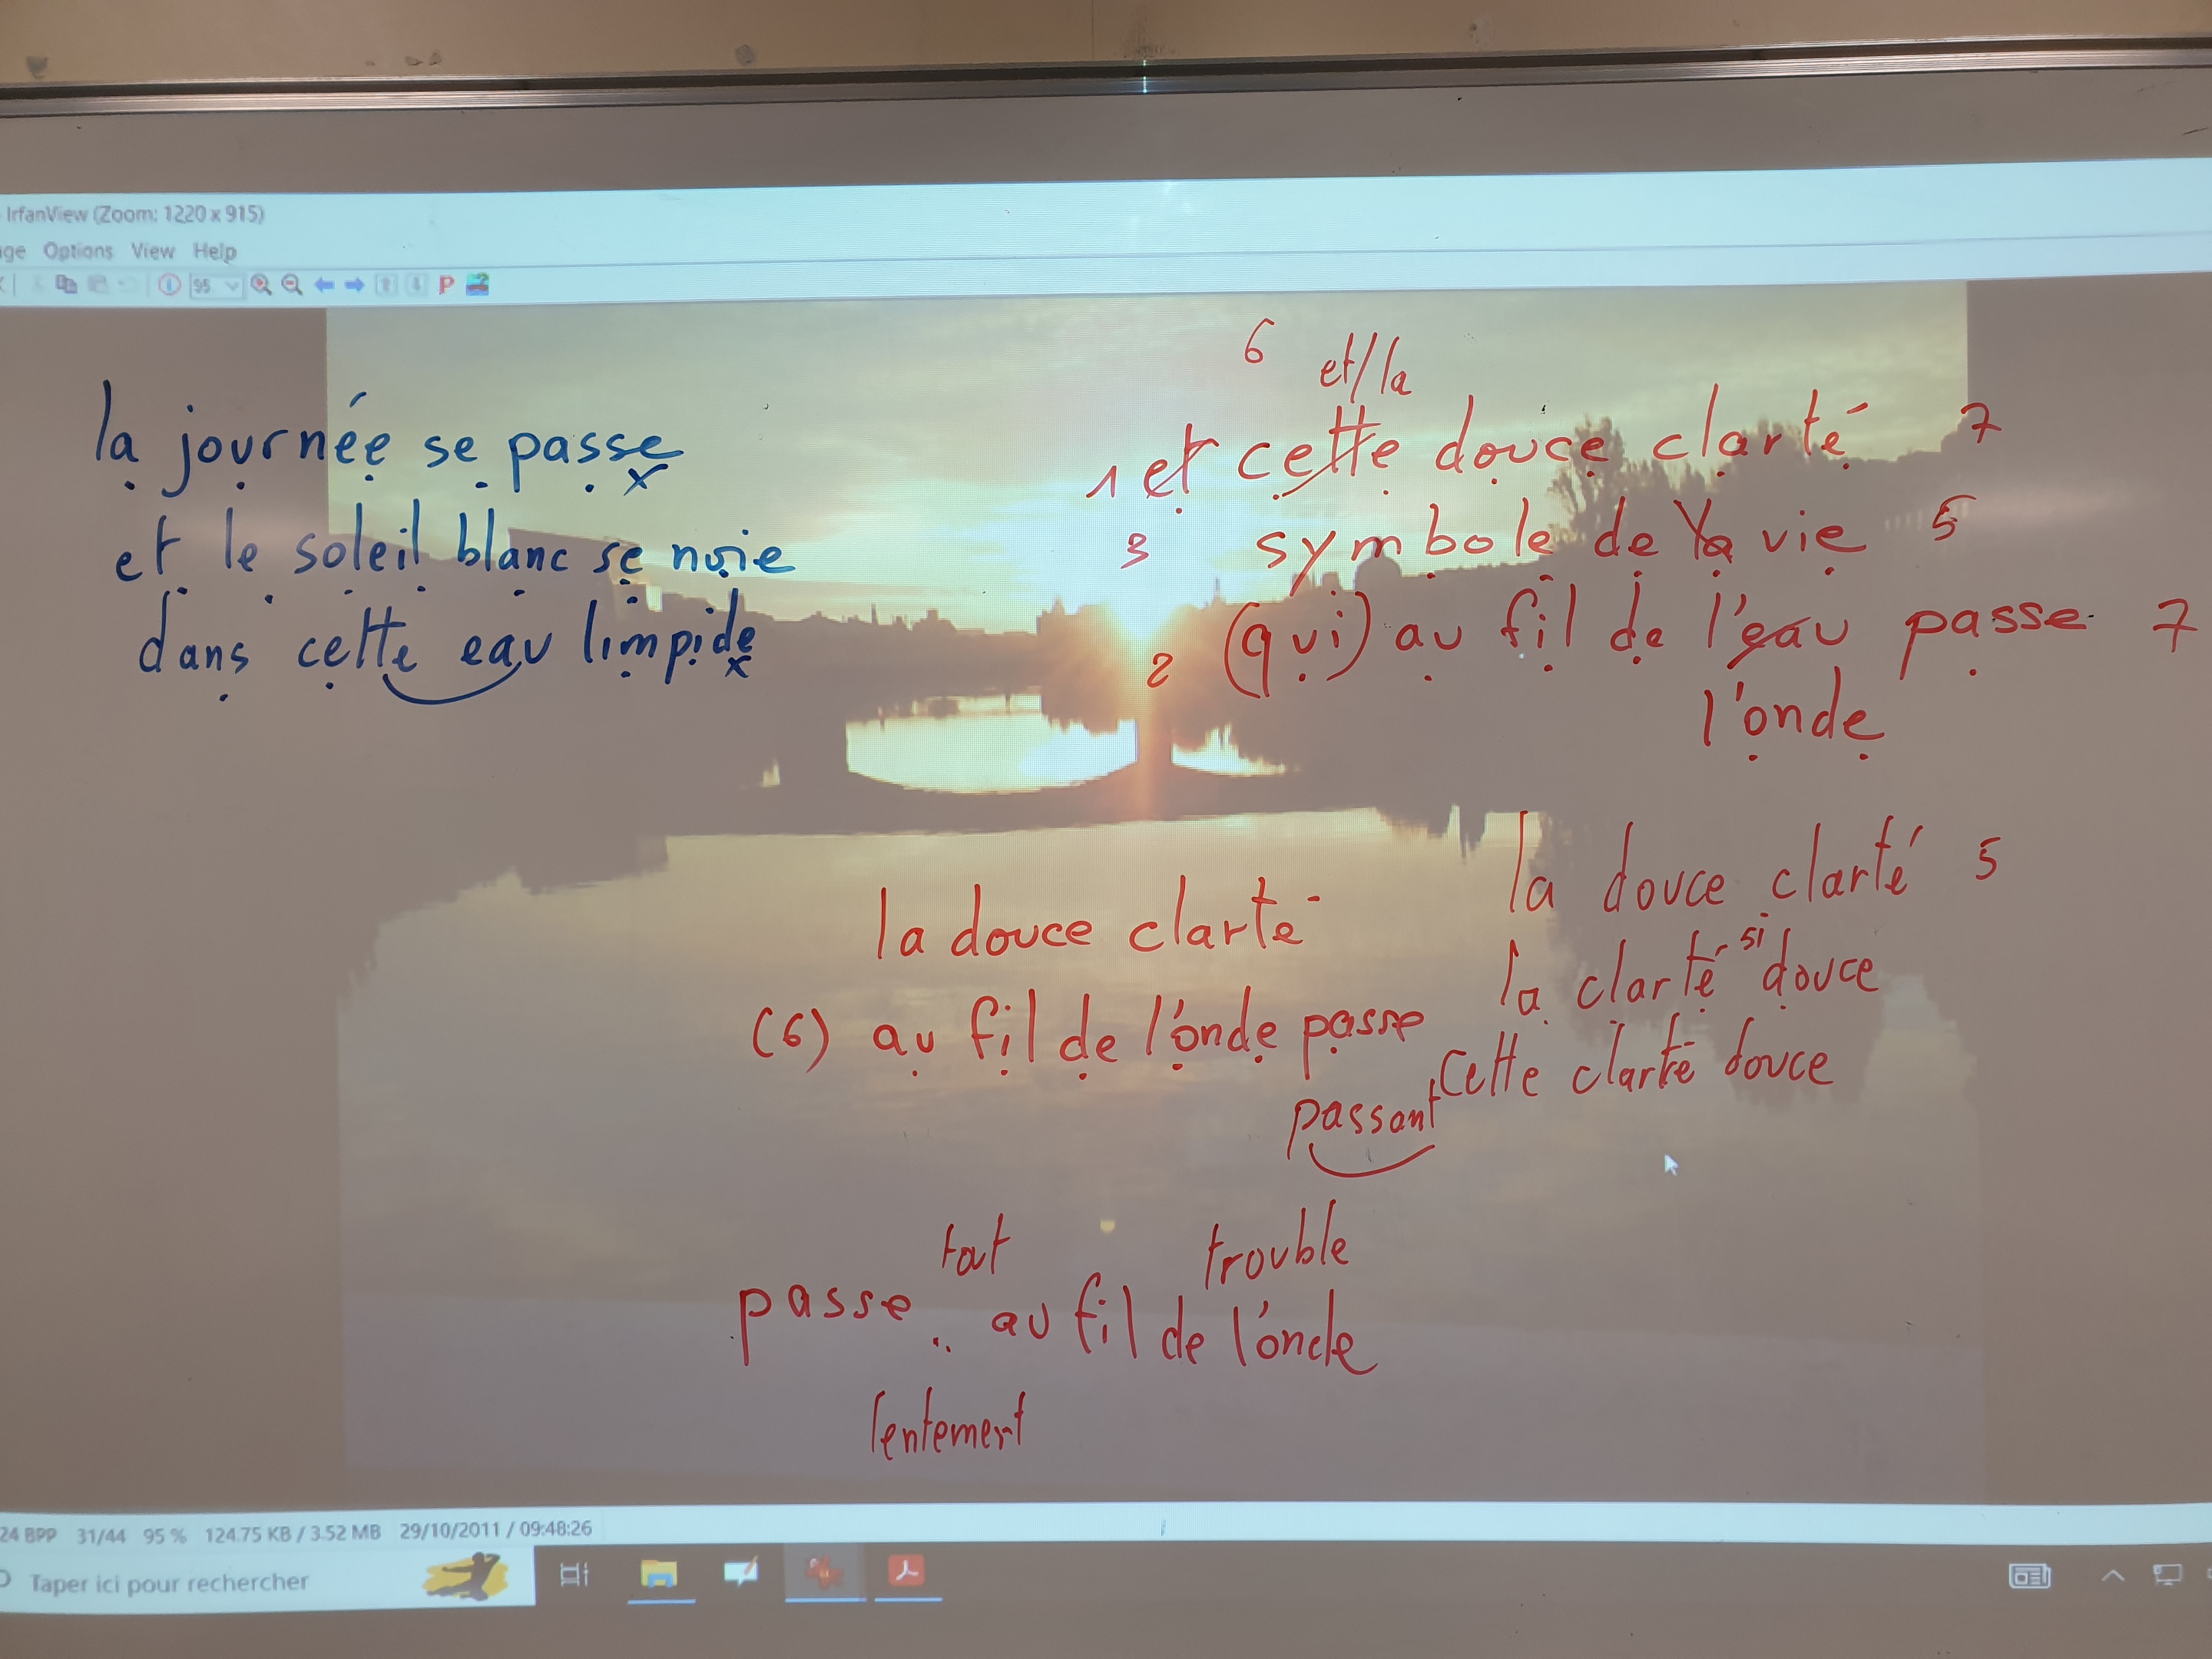 IrfanView (Zoom: 1220 x 915)
ge Options View Help
95
P
la journée se passe
et le soleil blanc se noie
dans cette eau limpide
6 et/la
1 et cette douce clarté 7
3 symbole de la vie 5
2 (qui) au fil de l'eau passe 7
l'onde
la douce clarté
(6) au fil de l'onde passe
passant
la douce clarté 5
la clarté si douce
cette clarté douce
tout trouble
passe au fil de l'onde
lentement
24 BPP 31/44 95 % 124.75 KB / 3.52 MB 29/10/2011 / 09:48:26
Taper ici pour rechercher